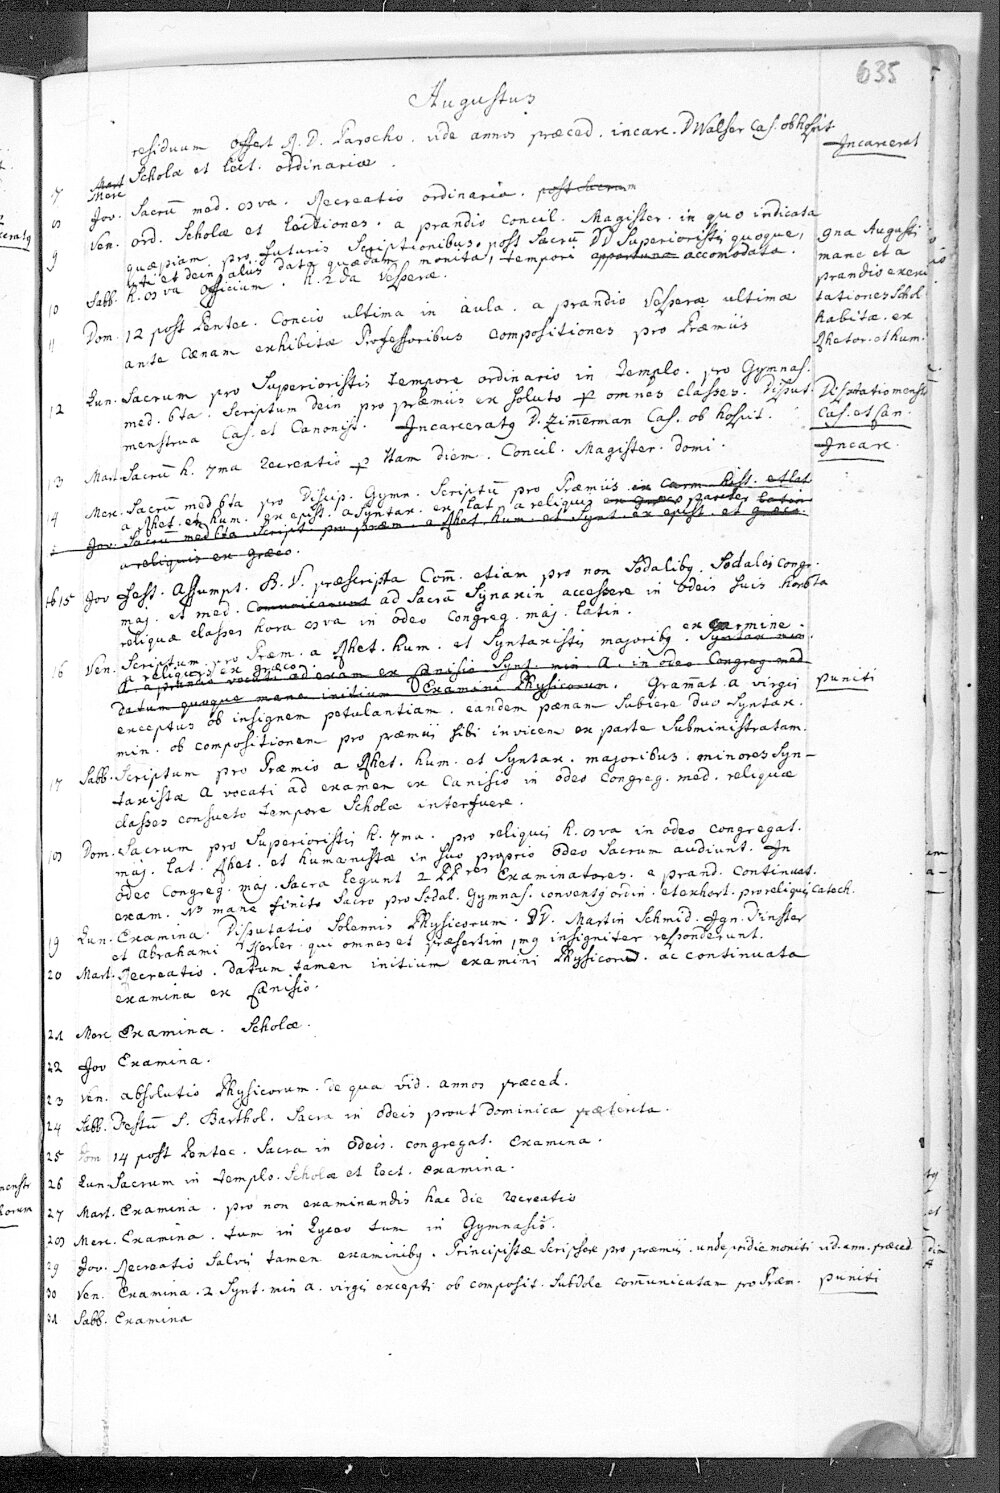 635
Augustus
residuum offert R. D. Parocho. vide annos præced. incarc. D Walser Cas. ob hospit.
Incarcerat
7 Mart Merc Scholæ et lect. ordinariæ.
8 Jov. Sacrũ med. 8va. Recreatio ordinaria. post Sacrum
9 Ven. ord. Scholæ et lectiones. a prandio concil. Magister. in quo indicata
quæpiam pro futuris Scriptionibus. post Sacrũ DD Superioristis quoque,
uti et dein aliis data quædam monita, tempori opportuna accomodata.
10 Sabb. h. 8va officium. h. 2da Vesperæ.
11 Dom. 12 post Pentec. Concio ultima in aula. a prandio Vesperæ ultimæ
ante Cœnam exhibitæ Professoribus compositiones pro Præmiis
gna Augusti
mane et a
prandio exerci
tationes Schol
habitæ. ex
Rhetor. et hum.
12 Lun. Sacrum pro Superioristis tempore ordinario in templo. pro Gymnas.
med. 6ta. Scriptum dein pro præmiis ex soluto p omnes classes. Disput
menstrua Cas. et Canonist. Incarceratg D. Zim̃erman Cas. ob hospit.
Disputatio menstr
Cas. et Can.
Incarc.
13 Mart. Sacrũ h. 7ma recreatio p t̃tam diem. Concil. Magister. domi.
14 Merc. Sacrũ med 6ta pro Discip. Gymn. Scriptũ pro Præmiis ex carm hist. et lat
a Rhet. et hum. ex epist. a Syntax. ex lat. a reliquis ex græco pariter latin
Jov. Sacrũ med 6ta Script pro præm. a Rhet. hum. et Synt. ex epist. et græco.
a reliquis ex græco.
15 Jov Fest. Assumpt. B. V. præscripta Com̃. etiam pro non Sodalibg. Sodales Congr.
maj. et med. Communicarunt ad Sacrã Synaxin accessere in odeis suis hora 6ta
reliquæ classes hora 8va in odeo Congreg. maj. latin.
16 Ven. Scriptum pro Præm. a Rhet. hum. et Syntaxistis majoribg. ex carmine. Syntax min.
a reliquis ex græco.
A. a prandio vocati ad exam ex Canisio Synt. min A. in odeo Congreg med
datum quoque mane initium Examini Physicorum. Gram̃at. a virgis
exceptus ob insignem petulantiam. eandem pœnam subiere duo Syntax.
min. ob compositionem pro præmiis sibi invicem ex parte subministratam.
puniti
17 Sabb. Scriptum pro Præmio a Rhet. hum. et Syntax. majoribus. minores Syn-
taxistæ A vocati ad examen ex Canisio in odeo Congreg. med. reliquæ
classes consueto tempore Scholæ interfuere.
18 Dom. Sacrum pro Superioristis h. 7ma. pro reliquis h. 8va in odeo congregat.
maj. lat. Rhet. et humanistæ in suo proprio odeo Sacrum audiunt. In
odeo Congreg. maj. Sacra legunt 2 PP res Examinatores. a prand. continuat.
exam. NB mane finito Sacro pro Sodal. Gymnas. conventg ordin. et exhort. pro reliquis Catech.
19 Lun. Examina. Disputatio solennis Physicorum. DD. Martin Schmid. Ign. Finster
et Abrahami Herler. qui omnes et præsertim 1mg insigniter responderunt.
20 Mart. Recreatio. datum tamen initium examini Physicorũ. ac continuata
examina ex Canisio.
21 Merc Examina. Scholæ.
22 Jov Examina.
23 Ven. absolutio Physicorum. de qua vid. annos præced.
24 Sabb. Festũ S. Barthol. Sacra in odeis prout Dominica præterita.
25 Dom 14 post Pentec. Sacra in odeis. congregat. Examina.
26 Lun Sacrum in templo. Scholæ et lect. examina.
27 Mart. Examina. pro non examinandis hac die recreatio
28 Merc. Examina. tum in Lyceo tum in Gymnasio.
29 Jov. Recreatio salvis tamen examinibg. Principistæ scripsere pro præmiis. unde pridie moniti vid. ann. præced
30 Ven. Examina. 2 Synt. min A. virgis excepti ob composit. subdole com̃unicatam pro Præm.
puniti
31 Sabb. Examina